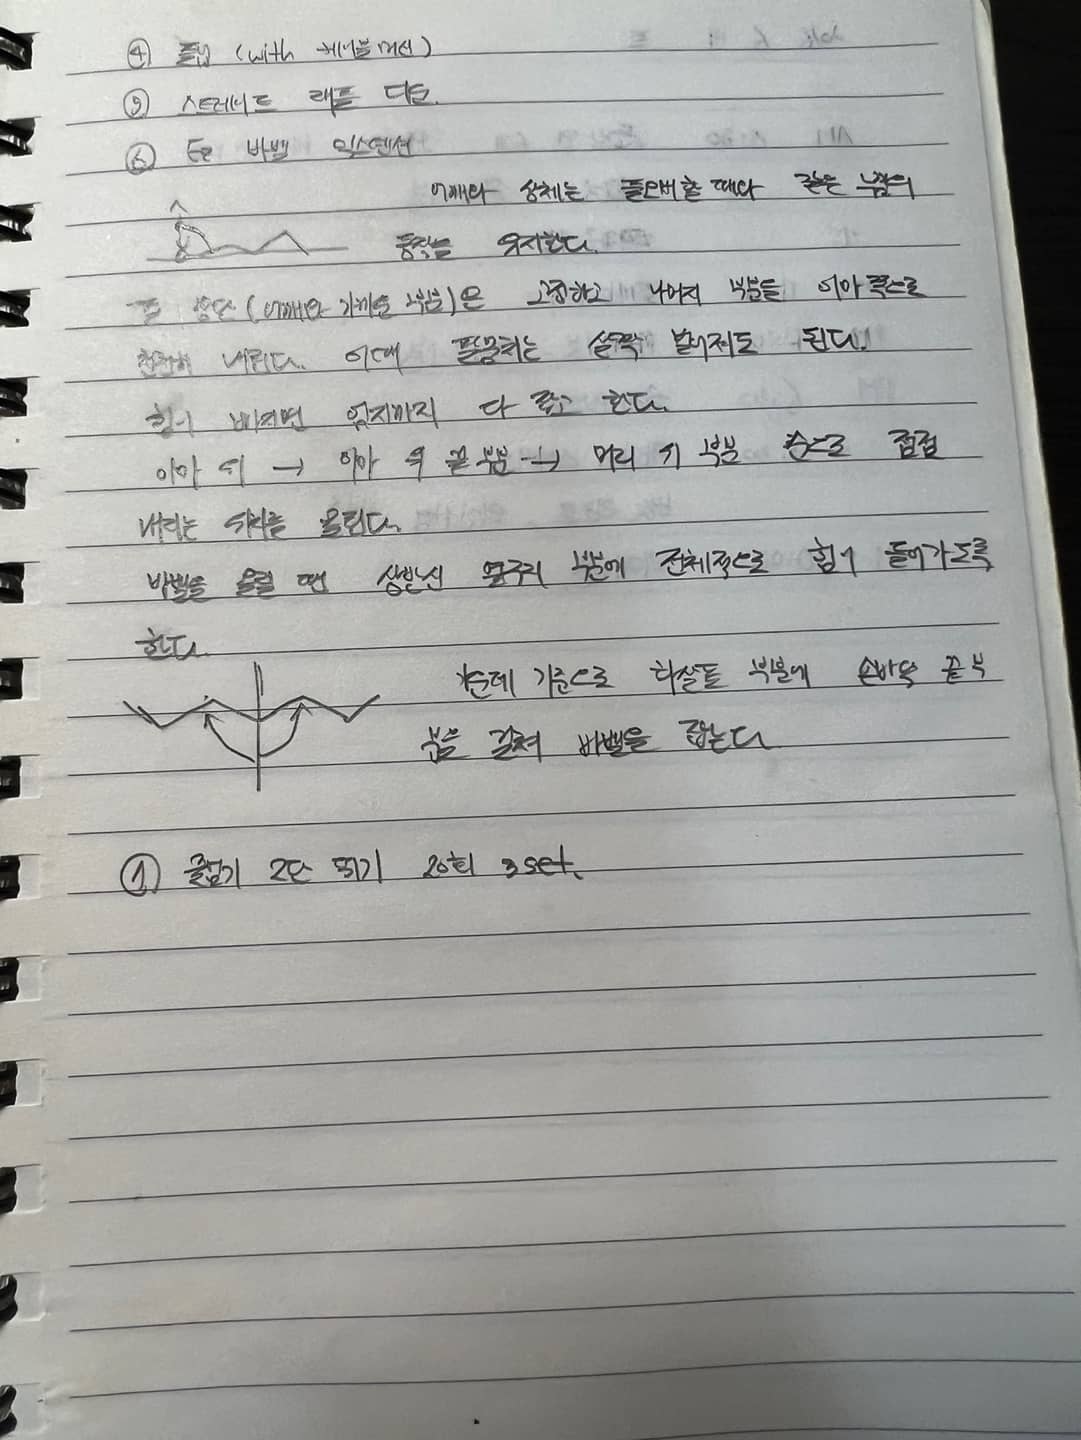 ④ 풀업 (with 케이블 머신)
⑤ 스트레이트 래플 다운
⑥ EZ 바벨 익스텐션
어깨와 상체는 풀오버 할 때와 같은 느낌의
동작을 유지한다.
팔 상단(어깨와 가까운 부분)은 고정하고 나머지 부분들 이마 쪽으로
천천히 내린다. 이때 팔꿈치는 살짝 벌어져도 된다.
힘이 빠지면 엄지까지 다 잡고 한다.
이마 위 → 이마 위 끝 부분 → 머리 위 부분 순으로 점점
내리는 위치를 올린다.
바벨을 올릴 땐 상반신 옆구리 부분에 전체적으로 힘이 들어가도록
한다.
가운데 기준으로 화살표 부분에 손바닥 끝 부
분을 걸쳐 바벨을 잡는다
① 줄넘기 2단 뛰기 20회 3set.